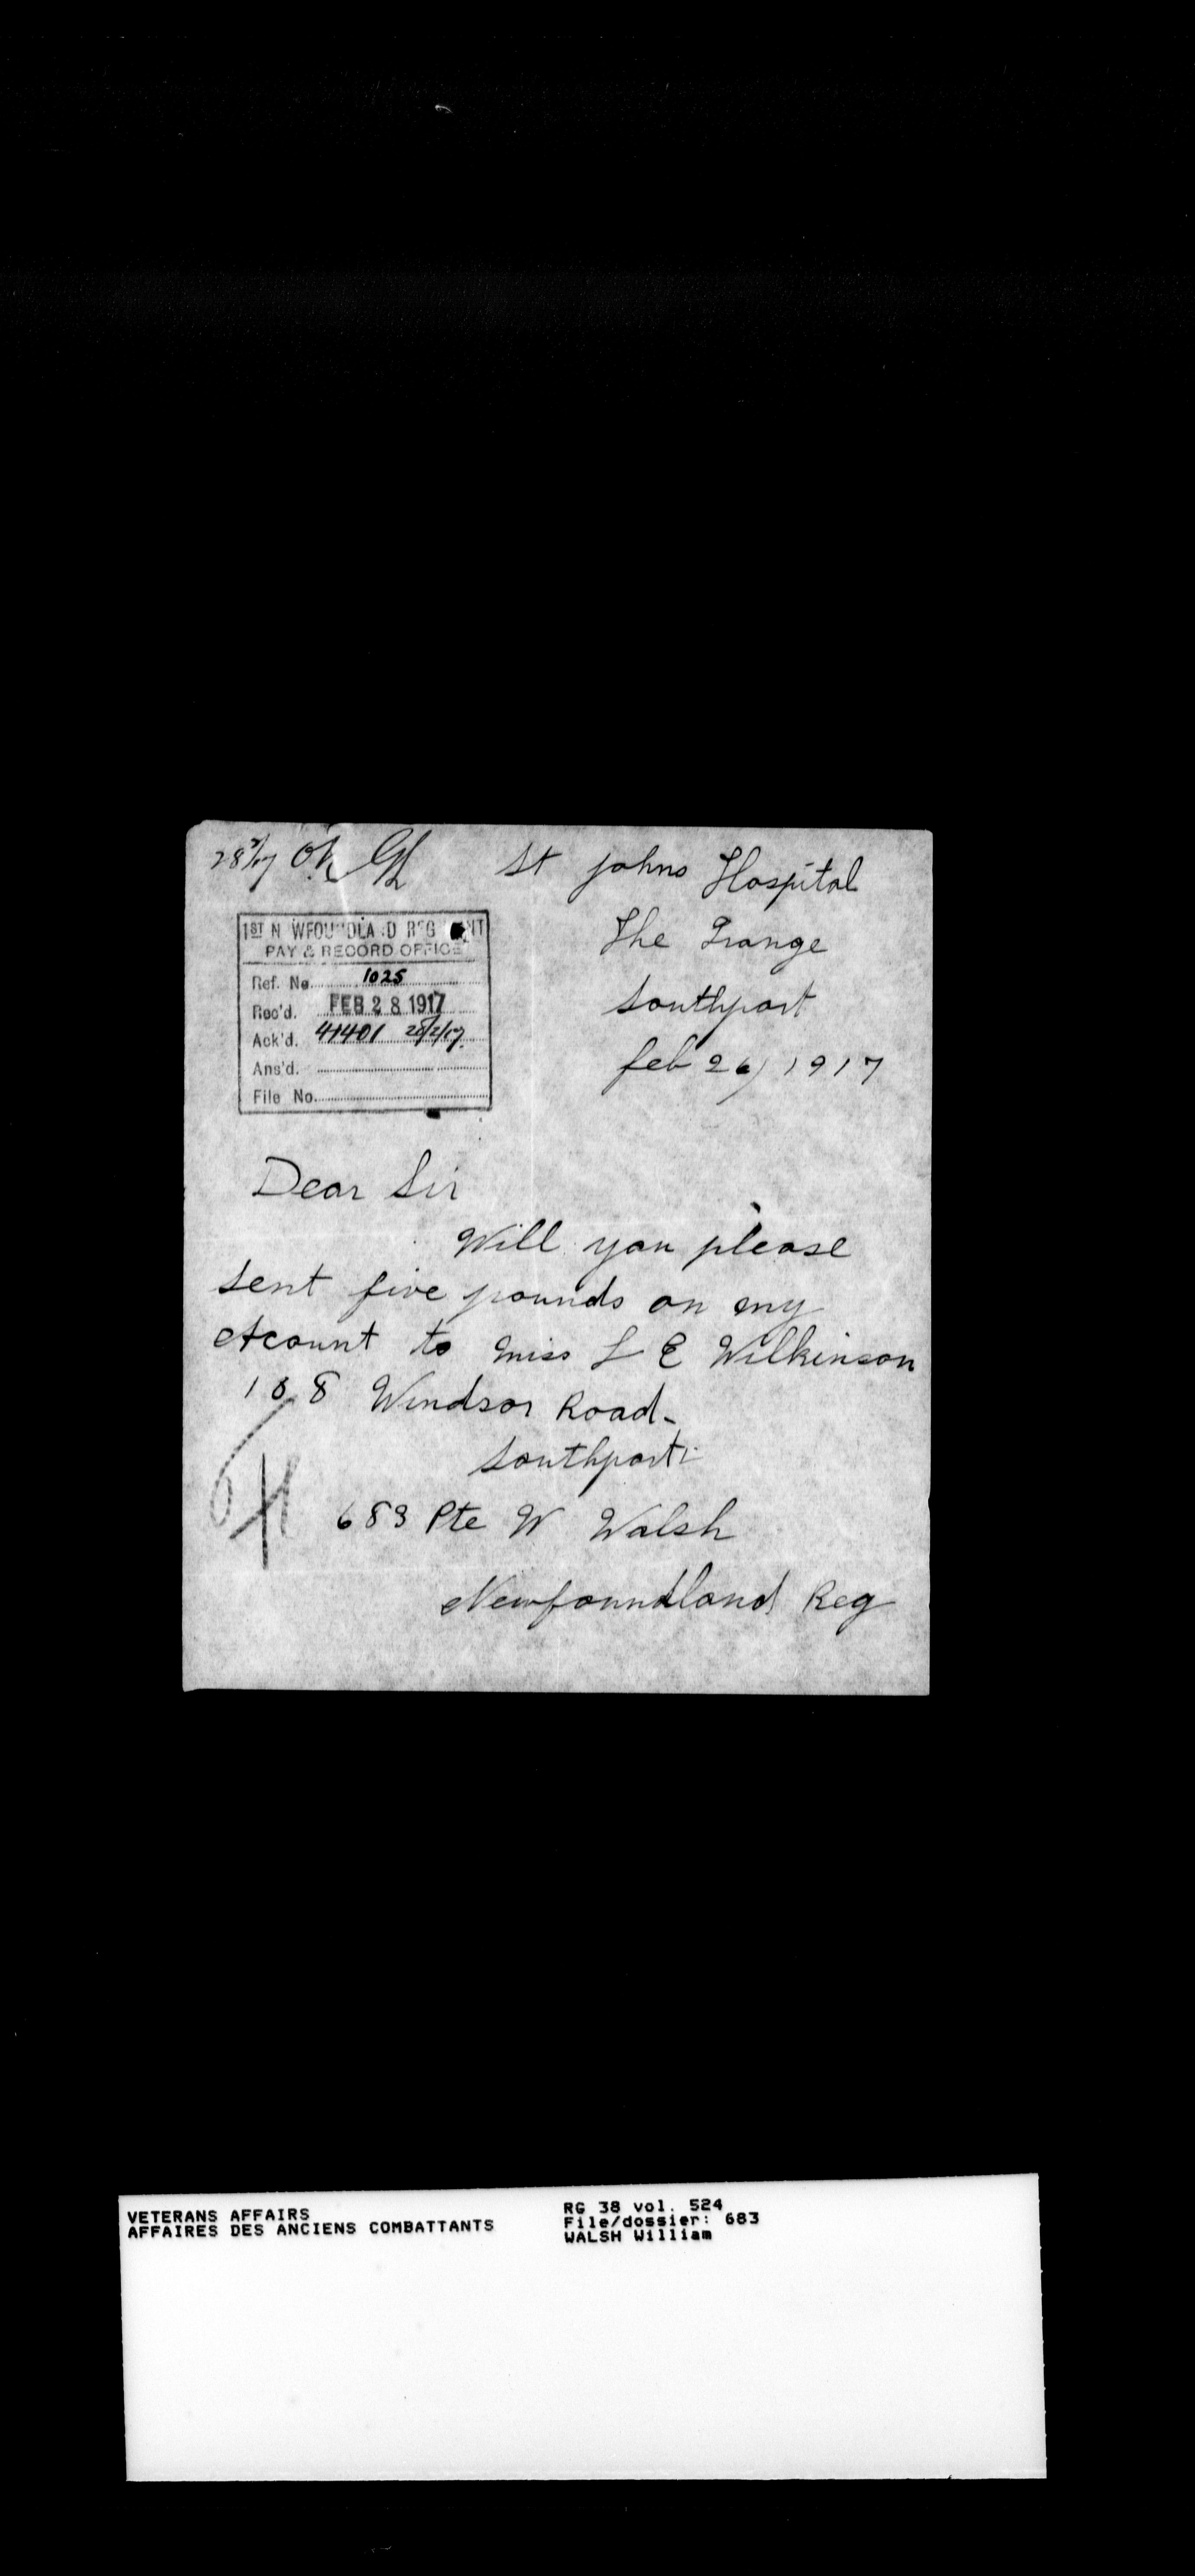 28/2/17 O.K.
St Johns Hospital
The Grange
Southport
feb 26/1917
1ST NEWFOUNDLAND REGIMENT
PAY & RECORD OFFICE
Ref. No. 1025
Rec'd. FEB 28 1917
Ack'd. 41401 28/2/17.
Ans'd.
File No.
Dear Sir
Will you please
sent five pounds on my
Acount to miss L E Wilkinson
108 Windsor Road-
Southport
683 Pte W Walsh
Newfoundland Reg
VETERANS AFFAIRS
AFFAIRES DES ANCIENS COMBATTANTS
RG 38 vol. 524
File/dossier: 683
WALSH William